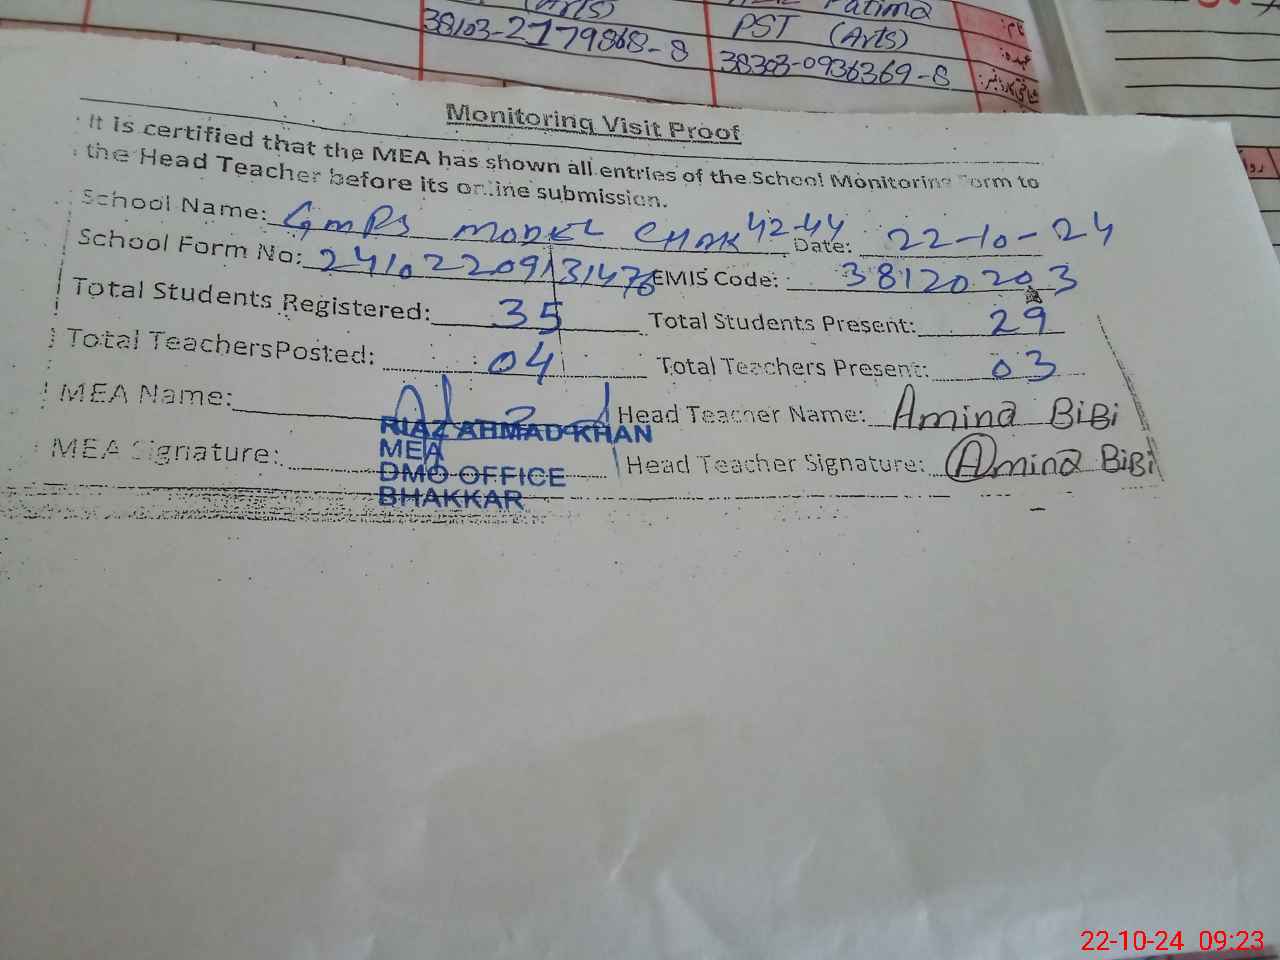 (Arts)
Fatima
PST (Arts)
نام:
عہدہ:
38103-2179868-8
38303-0936369-8
شناختی کارڈ نمبر:
Monitoring Visit Proof
It is certified that the MEA has shown all entries of the School Monitoring Form to
the Head Teacher before its online submission.
School Name: GMPS MODEL CHAK 42-44 Date: 22-10-24
School Form No: 24102209131476 EMIS Code: 38120203
Total Students Registered: 35 Total Students Present: 29
Total Teachers Posted: 04 Total Teachers Present: 03
MEA Name: Head Teacher Name: Amina BiBi
RIAZ AHMAD KHAN
MEA
MEA Signature: Head Teacher Signature: Amina BiBi
DMO OFFICE
BHAKKAR
22-10-24 09:23